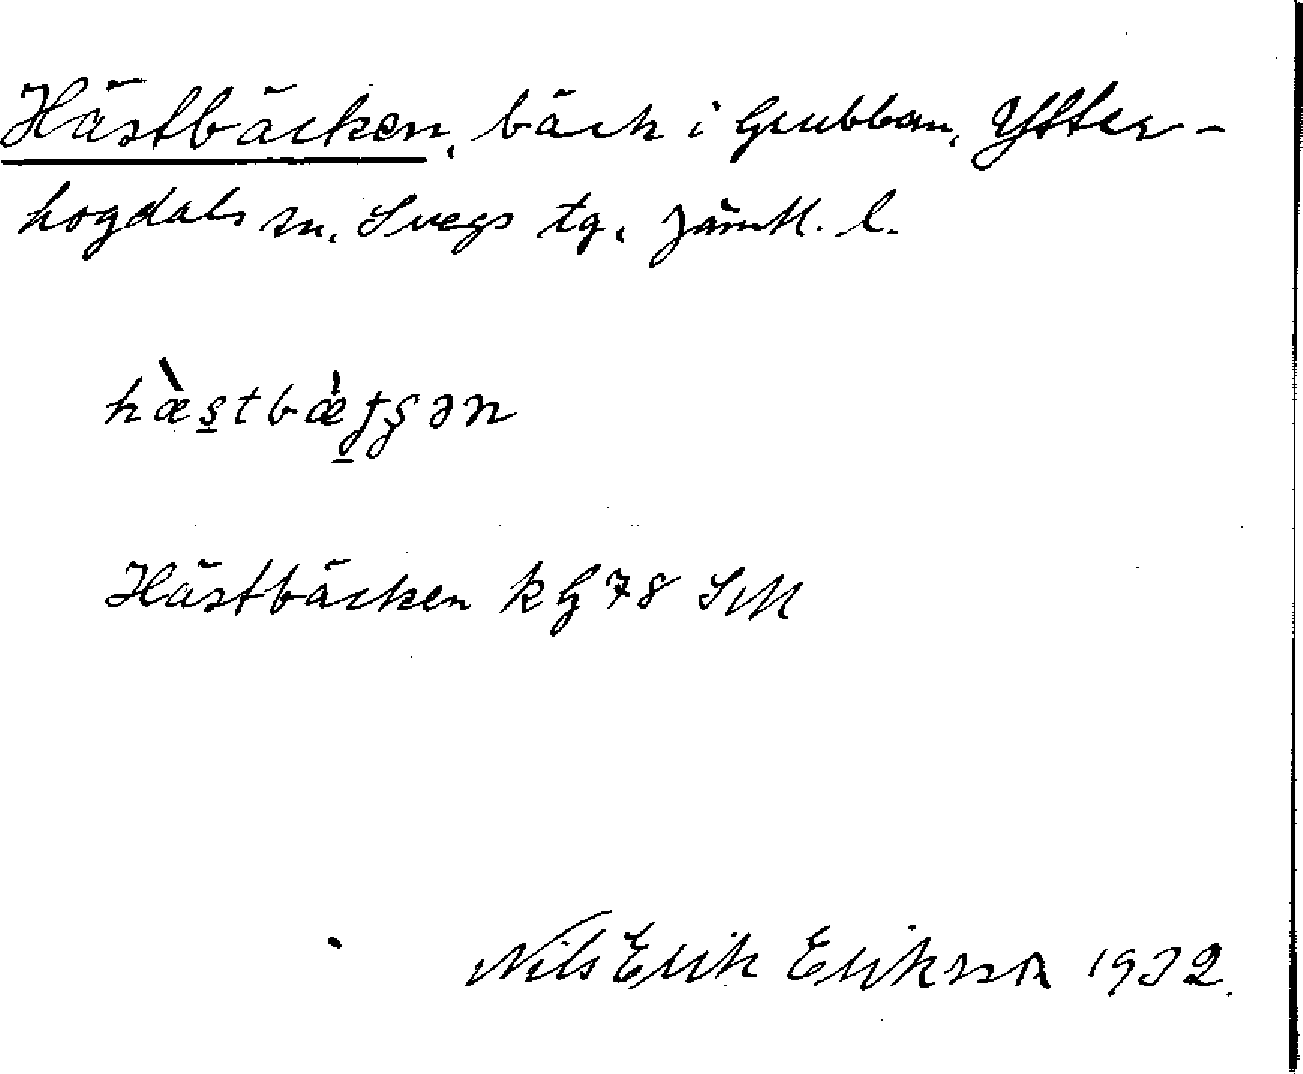 Hästbäcken, bäck i Grubban, Ytter-
hogdals sn. Svegs tg. Jämtl. l.
hæ̀s̲tbæ̀ʄ̲ʂən
Hästbäcken kG 78 SM
Nils Erik Erikson 1932.